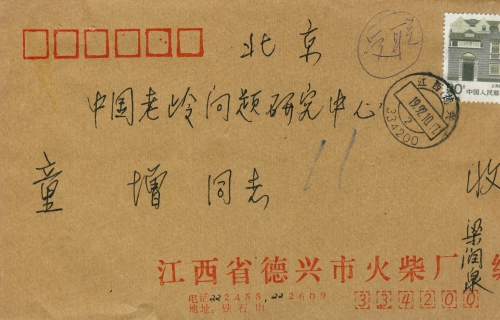 北京
中国老龄问题研究中心
童增同志
收
梁润泉
江西省德兴市火柴厂
电话22488,22609
地址:铁石山
334200
中国人民邮
20
1992.10.17
334200